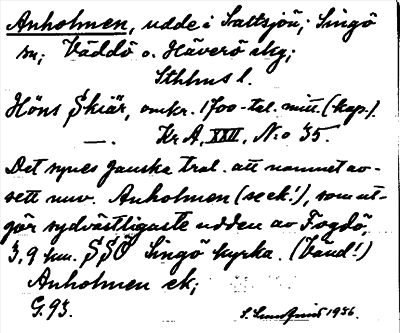 Anholmen, udde i Saltsjön; Singö
sn; Väddö o. Häverö skg;
Sthlms l.
Höns Skiär, omkr. 1700-tal. mitt. (kap.).
—. Kr A, XXII, N:o 35.
Det synes ganska trol. att namnet av-
sett nuv. Anholmen (se ek!), som ut-
gör sydvästligaste udden av Fogdö,
3,9 km. SSÖ Singö kyrka. (Vänd!)
Anholmen ek;
G. 93.
1936.